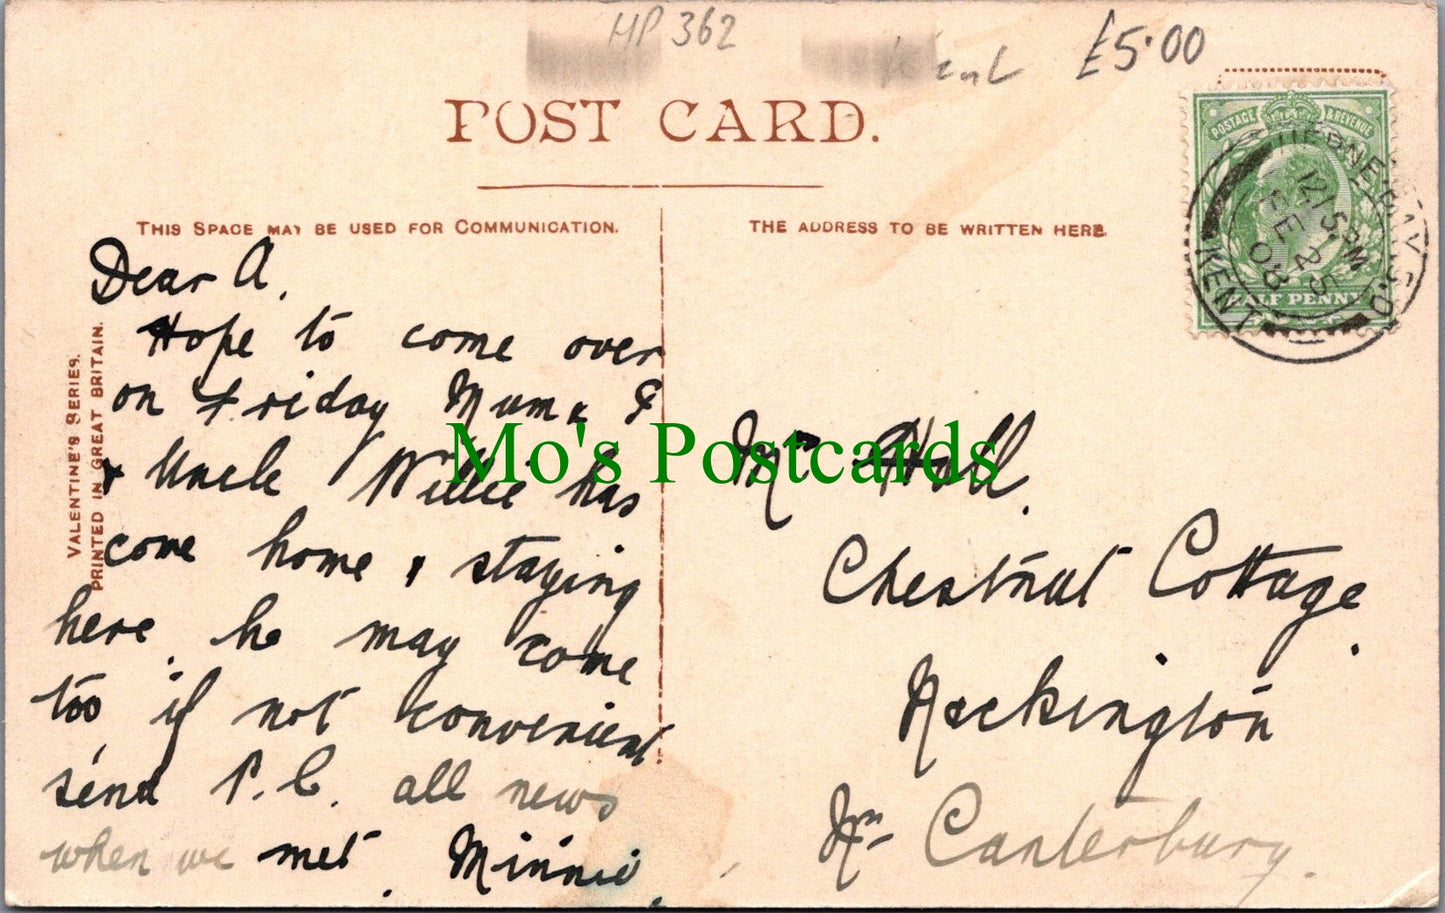 HP 362
Kent £5.00
POST CARD.
THIS SPACE MAY BE USED FOR COMMUNICATION.
THE ADDRESS TO BE WRITTEN HERE.
POSTAGE & REVENUE
HALF PENNY
HERNE BAY S.O
12.15 PM
FE 25
08
KENT
VALENTINE'S SERIES.
PRINTED IN GREAT BRITAIN.
Dear A.
Hope to come over
on Friday Mum &
& Uncle Willie has
come home & staying
here. he may come
too if not convenient
send P.C. all news
when we met. Minnie.
Mrs Holl.
Chestnut Cottage.
Hackington
Nr Canterbury.
Mo's Postcards